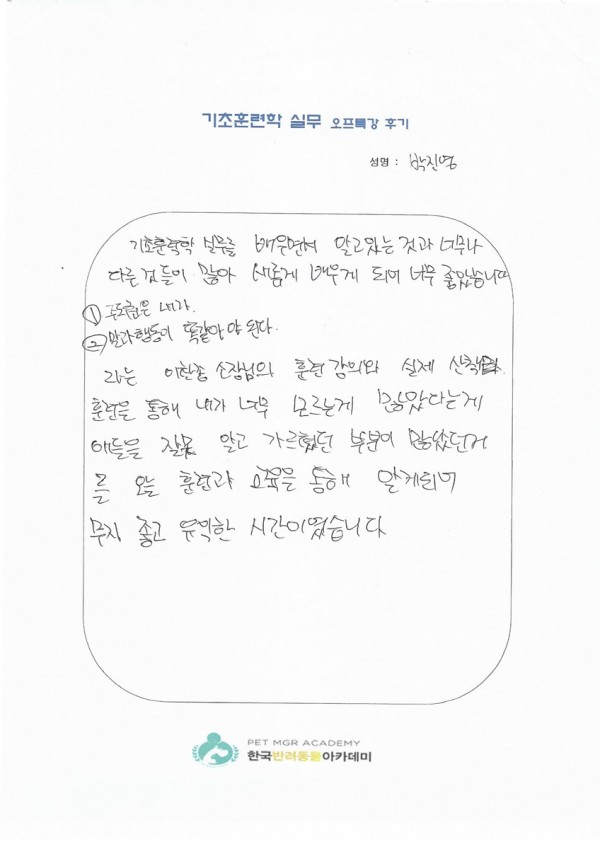 기초훈련학 실무 오프특강 후기
성명 : 박진영
기초훈련학 실무를 배우면서 알고있는 것과 너무나
다른것들이 많아 새롭게 배우게 되어 너무 좋았습니다
① 주도권은 내가.
② 말과행동이 똑같아야 된다.
라는 이찬종 소장님의 훈련 강의와 실제 산책
훈련을 통해 내가 너무 모르는게 많았다는게
애들을 잘못 알고 가르쳤던 부분이 많았던거
를 오늘 훈련과 교육을 통해 알게되어
무지 좋고 유익한 시간이였습니다
PET MGR ACADEMY
한국반려동물아카데미